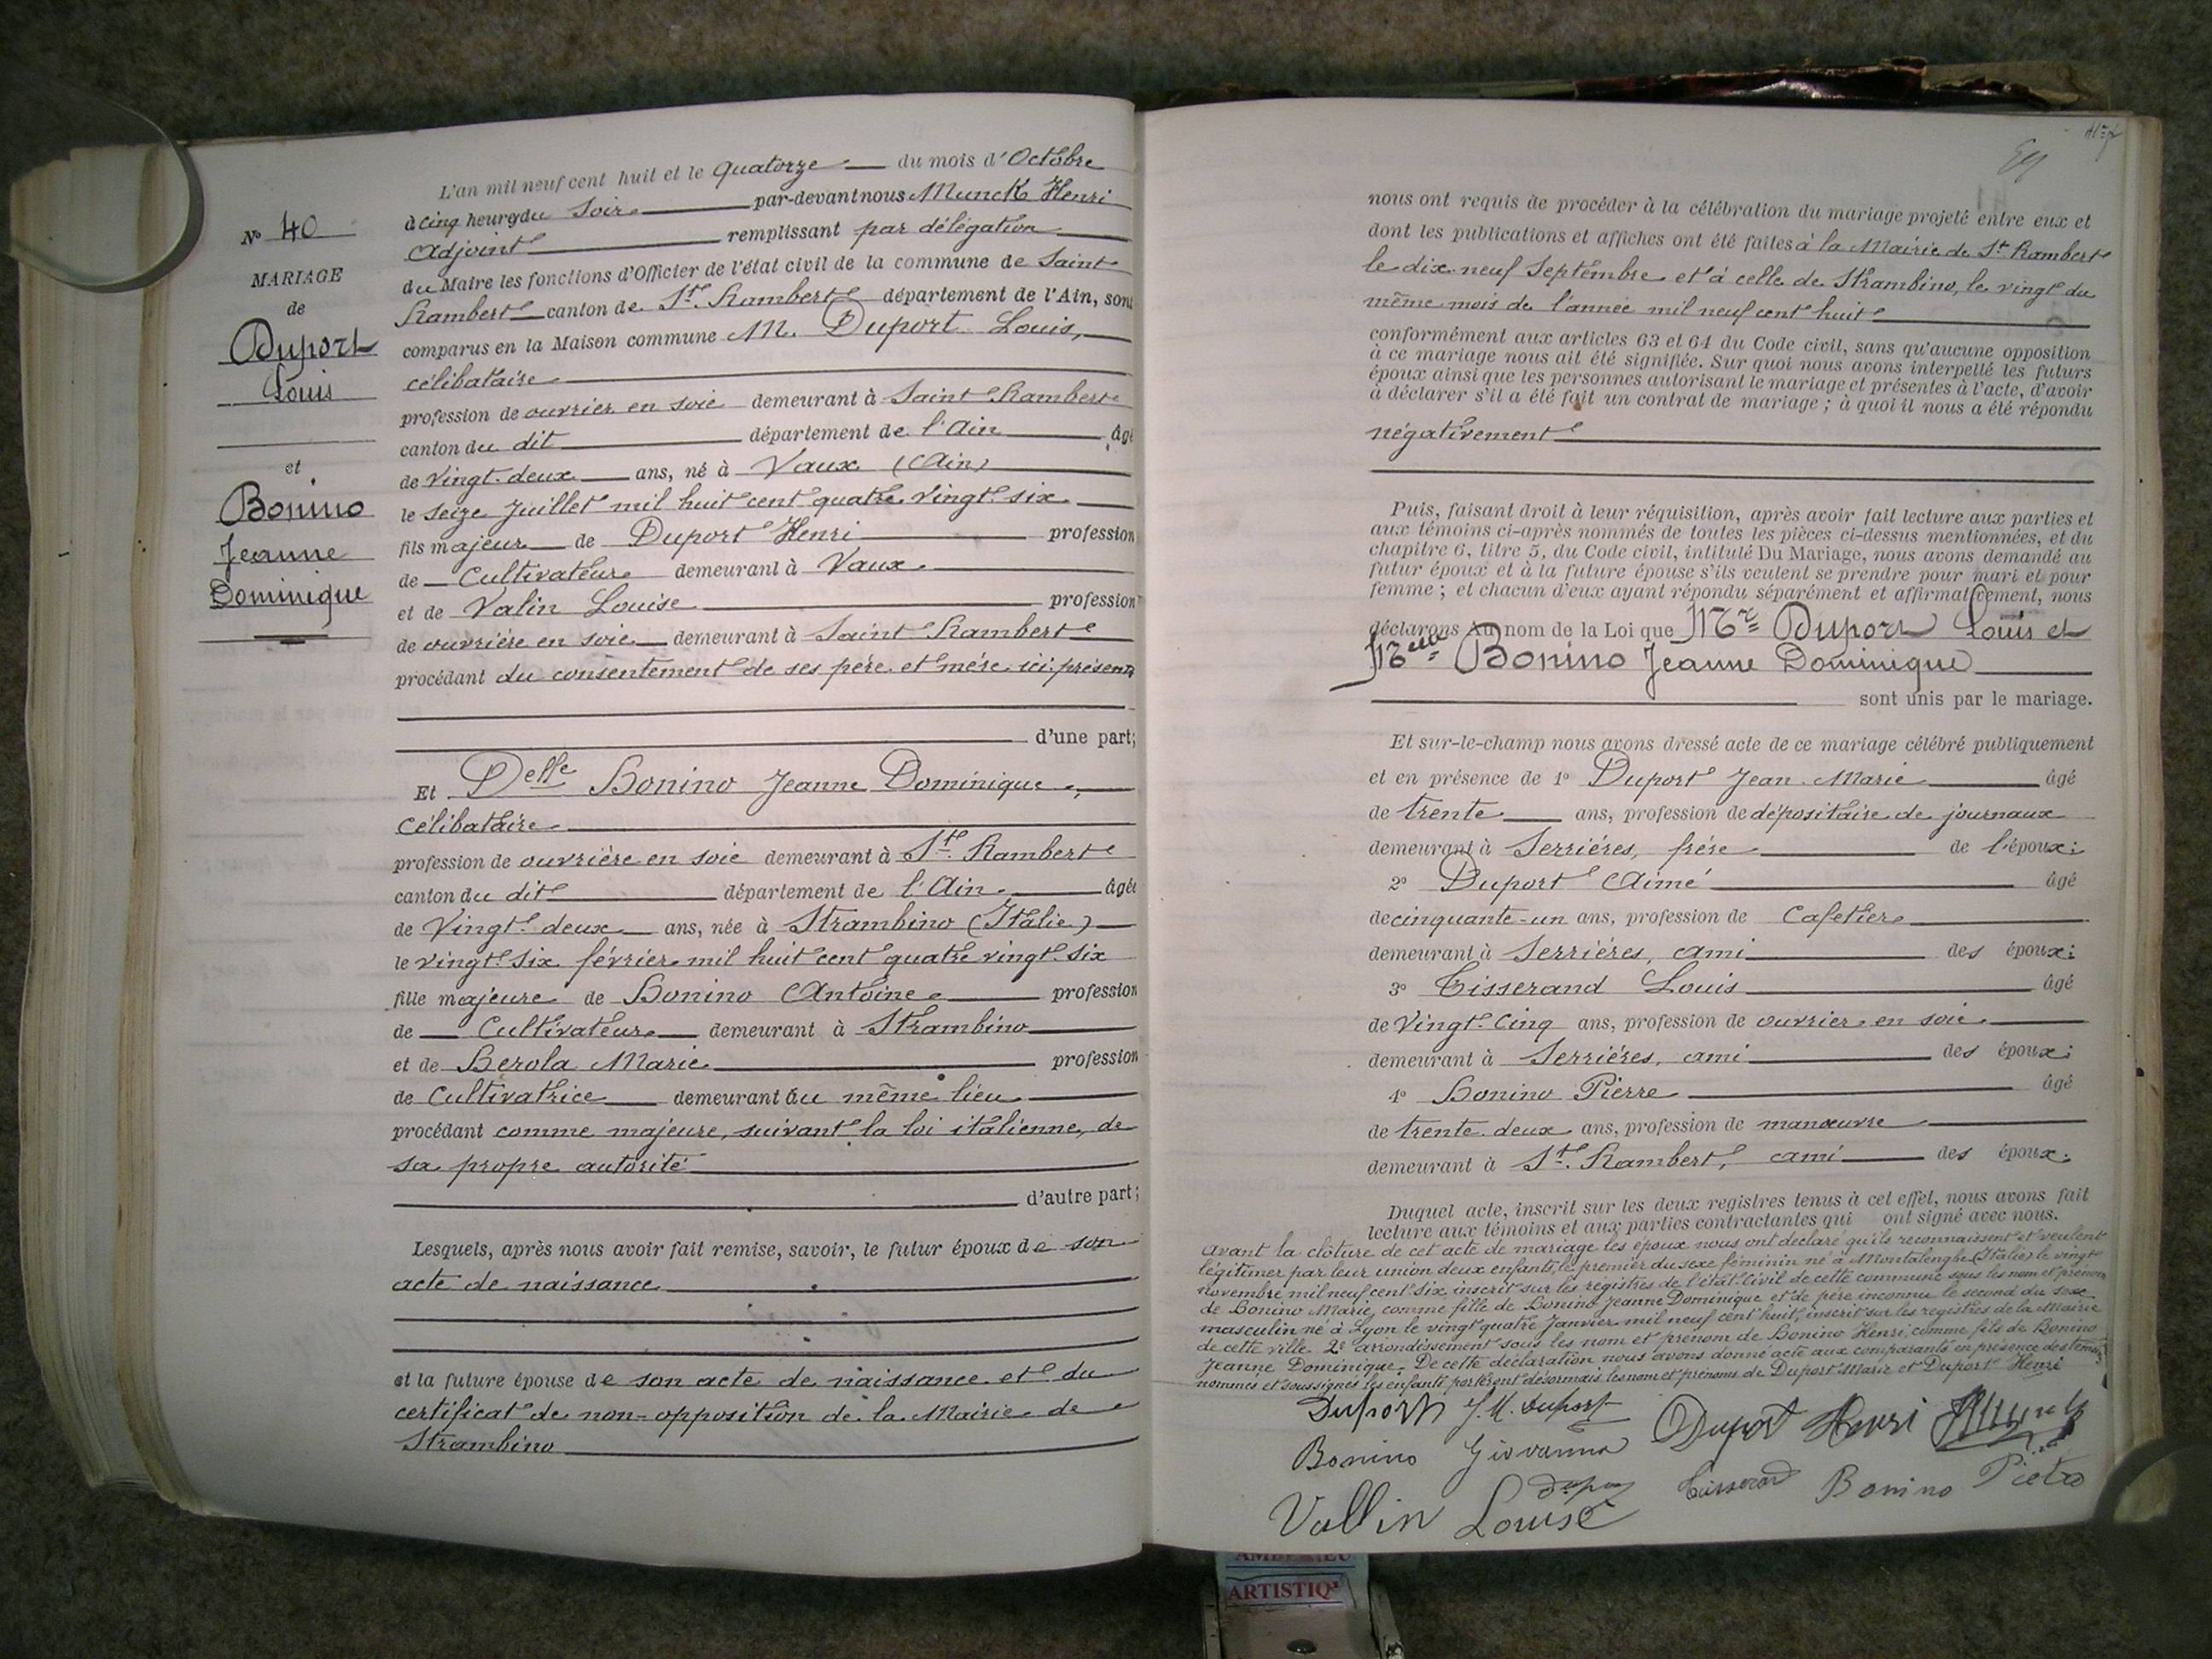 L'an mil neuf cent huit et le quatorze du mois d'Octobre
à cinq heures du Soir par-devant nous Munck Henri
Adjoint remplissant par délégation
du Maire les fonctions d'Officier de l'état civil de la commune de Saint
Rambert canton de St. Rambert département de l'Ain, sont
comparus en la Maison commune M. Duport Louis,
célibataire
profession de ouvrier en soie demeurant à Saint Rambert
canton du dit département de l'Ain âgé
de vingt-deux ans, né à Vaux (Ain)
le seize Juillet mil huit cent quatre vingt six
fils majeur de Duport Henri profession
de Cultivateur demeurant à Vaux
et de Valin Louise profession
de ouvrière en soie demeurant à Saint Rambert
procédant du consentement de ses père et mère ici présents
d'une part;
Et Delle Bonino Jeanne Dominique,
célibataire
profession de ouvrière en soie demeurant à St. Rambert
canton du dit département de l'Ain âgée
de Vingt-deux ans, née à Strambino (Italie)
le vingt-six février mil huit cent quatre vingt-six
fille majeure de Bonino Antoine profession
de Cultivateur demeurant à Strambino
et de Berola Marie profession
de Cultivatrice demeurant au même lieu
procédant comme majeure, suivant la loi italienne, de
sa propre autorité
d'autre part;
Lesquels, après nous avoir fait remise, savoir, le futur époux de son
acte de naissance
et la future épouse de son acte de naissance et du
certificat de non-opposition de la Mairie de
Strambino
No 40
MARIAGE
de
Duport
Louis
et
Bonino
Jeanne
Dominique
nous ont requis de procéder à la célébration du mariage projeté entre eux et
dont les publications et affiches ont été faites à la Mairie de St Rambert
le dix-neuf Septembre et à celle de Strambino, le vingt du
même mois de l'année mil neuf cent huit
conformément aux articles 63 et 64 du Code civil, sans qu'aucune opposition
à ce mariage nous ait été signifiée. Sur quoi nous avons interpellé les futurs
époux ainsi que les personnes autorisant le mariage et présentes à l'acte, d'avoir
à déclarer s'il a été fait un contrat de mariage; à quoi il nous a été répondu
négativement
Puis, faisant droit à leur réquisition, après avoir fait lecture aux parties et
aux témoins ci-après nommés de toutes les pièces ci-dessus mentionnées, et du
chapitre 6, titre 5, du Code civil, intitulé Du Mariage, nous avons demandé au
futur époux et à la future épouse s'ils veulent se prendre pour mari et pour
femme; et chacun d'eux ayant répondu séparément et affirmativement, nous
déclarons Au nom de la Loi que Mr Duport Louis et
Melle Bonino Jeanne Dominique
sont unis par le mariage.
Et sur-le-champ nous avons dressé acte de ce mariage célébré publiquement
et en présence de 1º Duport Jean-Marie âgé
de trente ans, profession de dépositaire de journaux
demeurant à Serrières, frère de l'époux;
2º Duport Aimé âgé
de cinquante-un ans, profession de Cafetier
demeurant à Serrières, ami des époux;
3º Tisserand Louis âgé
de Vingt-Cinq ans, profession de ouvrier en soie
demeurant à Serrières, ami des époux;
4º Bonino Pierre âgé
de trente-deux ans, profession de manœuvre
demeurant à St. Rambert, ami des époux.
Duquel acte, inscrit sur les deux registres tenus à cet effet, nous avons fait
lecture aux témoins et aux parties contractantes qui ont signé avec nous.
Avant la clôture de cet acte de mariage les époux nous ont déclaré qu'ils reconnaissent et veulent
légitimer par leur union deux enfants, le premier du sexe féminin né à Montalenghe (Italie) le vingt
novembre mil neuf cent six inscrit sur les registres de l'état-civil de cette commune sous les nom et prénom
de Bonino Marie, comme fille de Bonino Jeanne Dominique et de père inconnu le second du sexe
masculin né à Lyon le vingt quatre Janvier mil neuf cent huit, inscrit sur les registres de la Mairie
de cette ville 2e arrondissement sous les nom et prénom de Bonino Henri, comme fils de Bonino
Jeanne Dominique. De cette déclaration nous avons donné acte aux comparants en présence des témoins
nommés et soussignés les enfants porteront désormais les nom et prénoms de Duport Marie et Duport Henri
Duport J. M. Duport Duport Henri Munck
Bonino Giovanna
Tisserand Bonino Pietro
Vallin Louise
ARTISTIQ